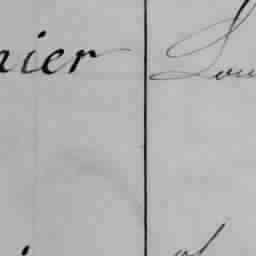 nier Lou